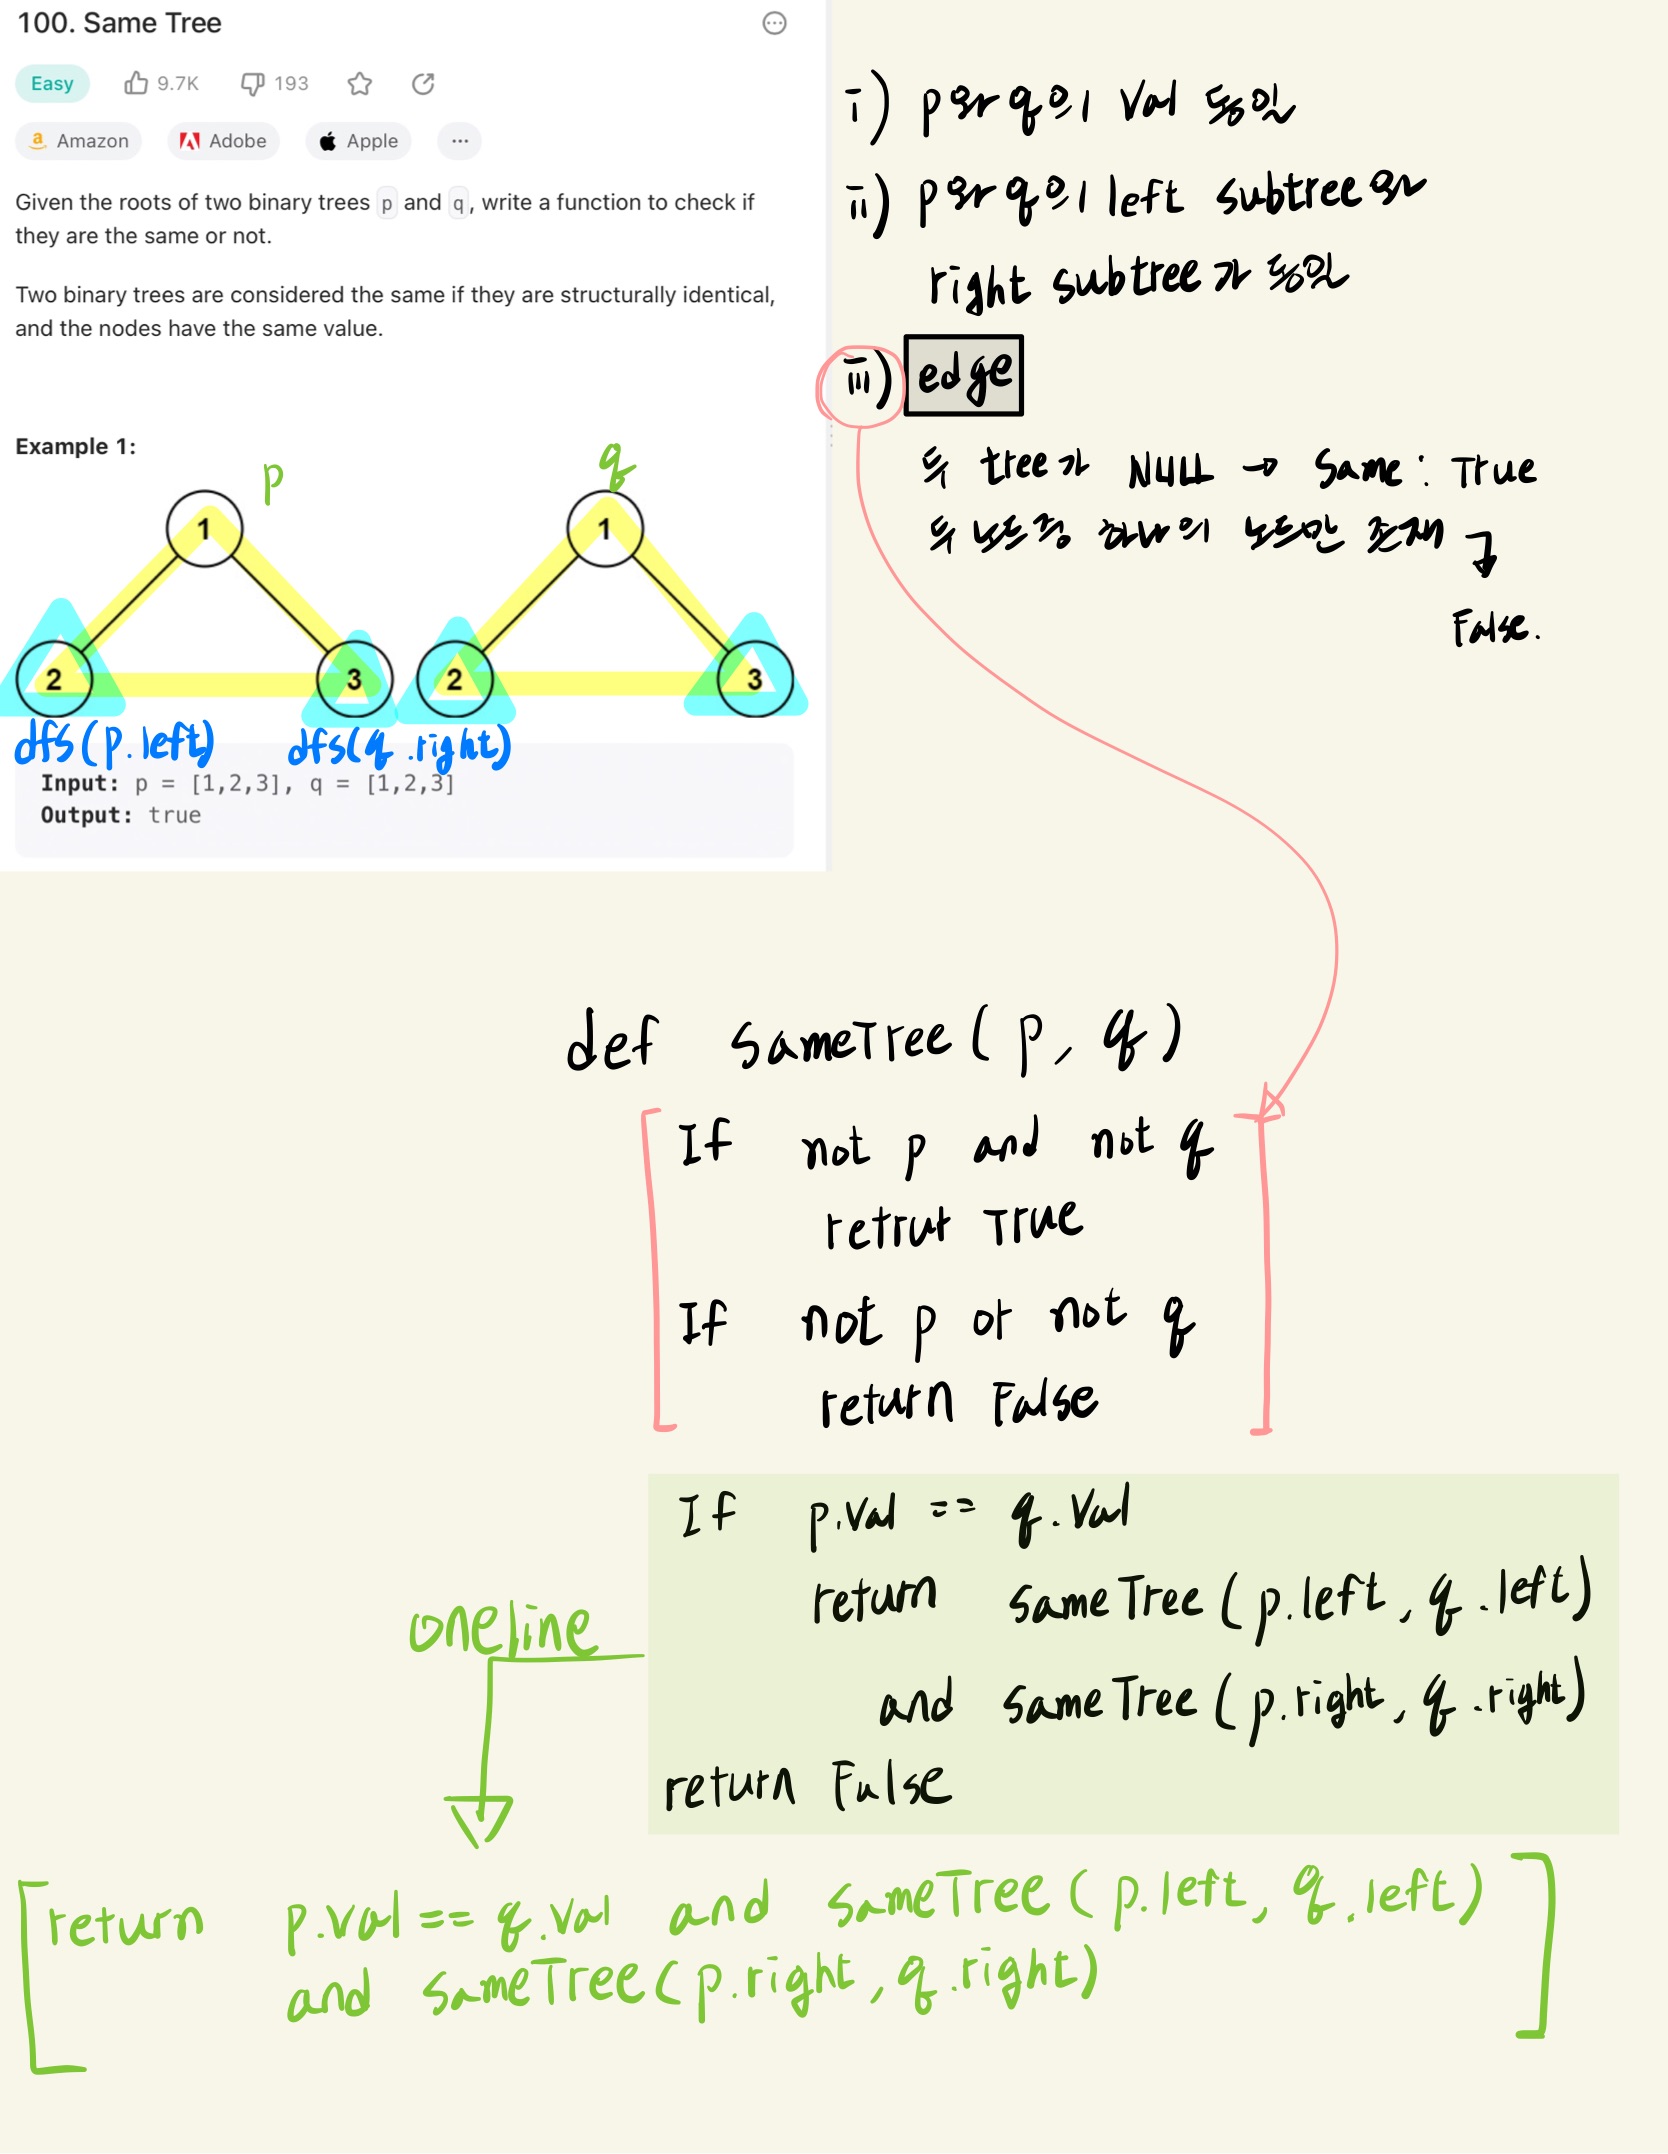 100. Same Tree
Easy 9.7K 193
Amazon Adobe Apple ...
Given the roots of two binary trees p and q, write a function to check if
they are the same or not.
Two binary trees are considered the same if they are structurally identical,
and the nodes have the same value.
Example 1:
p q
1 1
2 3 2 3
dfs(p.left) dfs(q.right)
Input: p = [1,2,3], q = [1,2,3]
Output: true
i) p와 q의 val 동일
ii) p와 q의 left subtree와
right subtree가 동일
iii) edge
두 tree가 NULL → Same : True
두 노드 중 하나의 노드만 존재
False.
def sameTree(p, q)
If not p and not q
retrut True
If not p or not q
return False
If p.val == q.val
return sameTree(p.left, q.left)
and sameTree(p.right, q.right)
return False
oneline
return p.val == q.val and sameTree(p.left, q.left)
and sameTree(p.right, q.right)